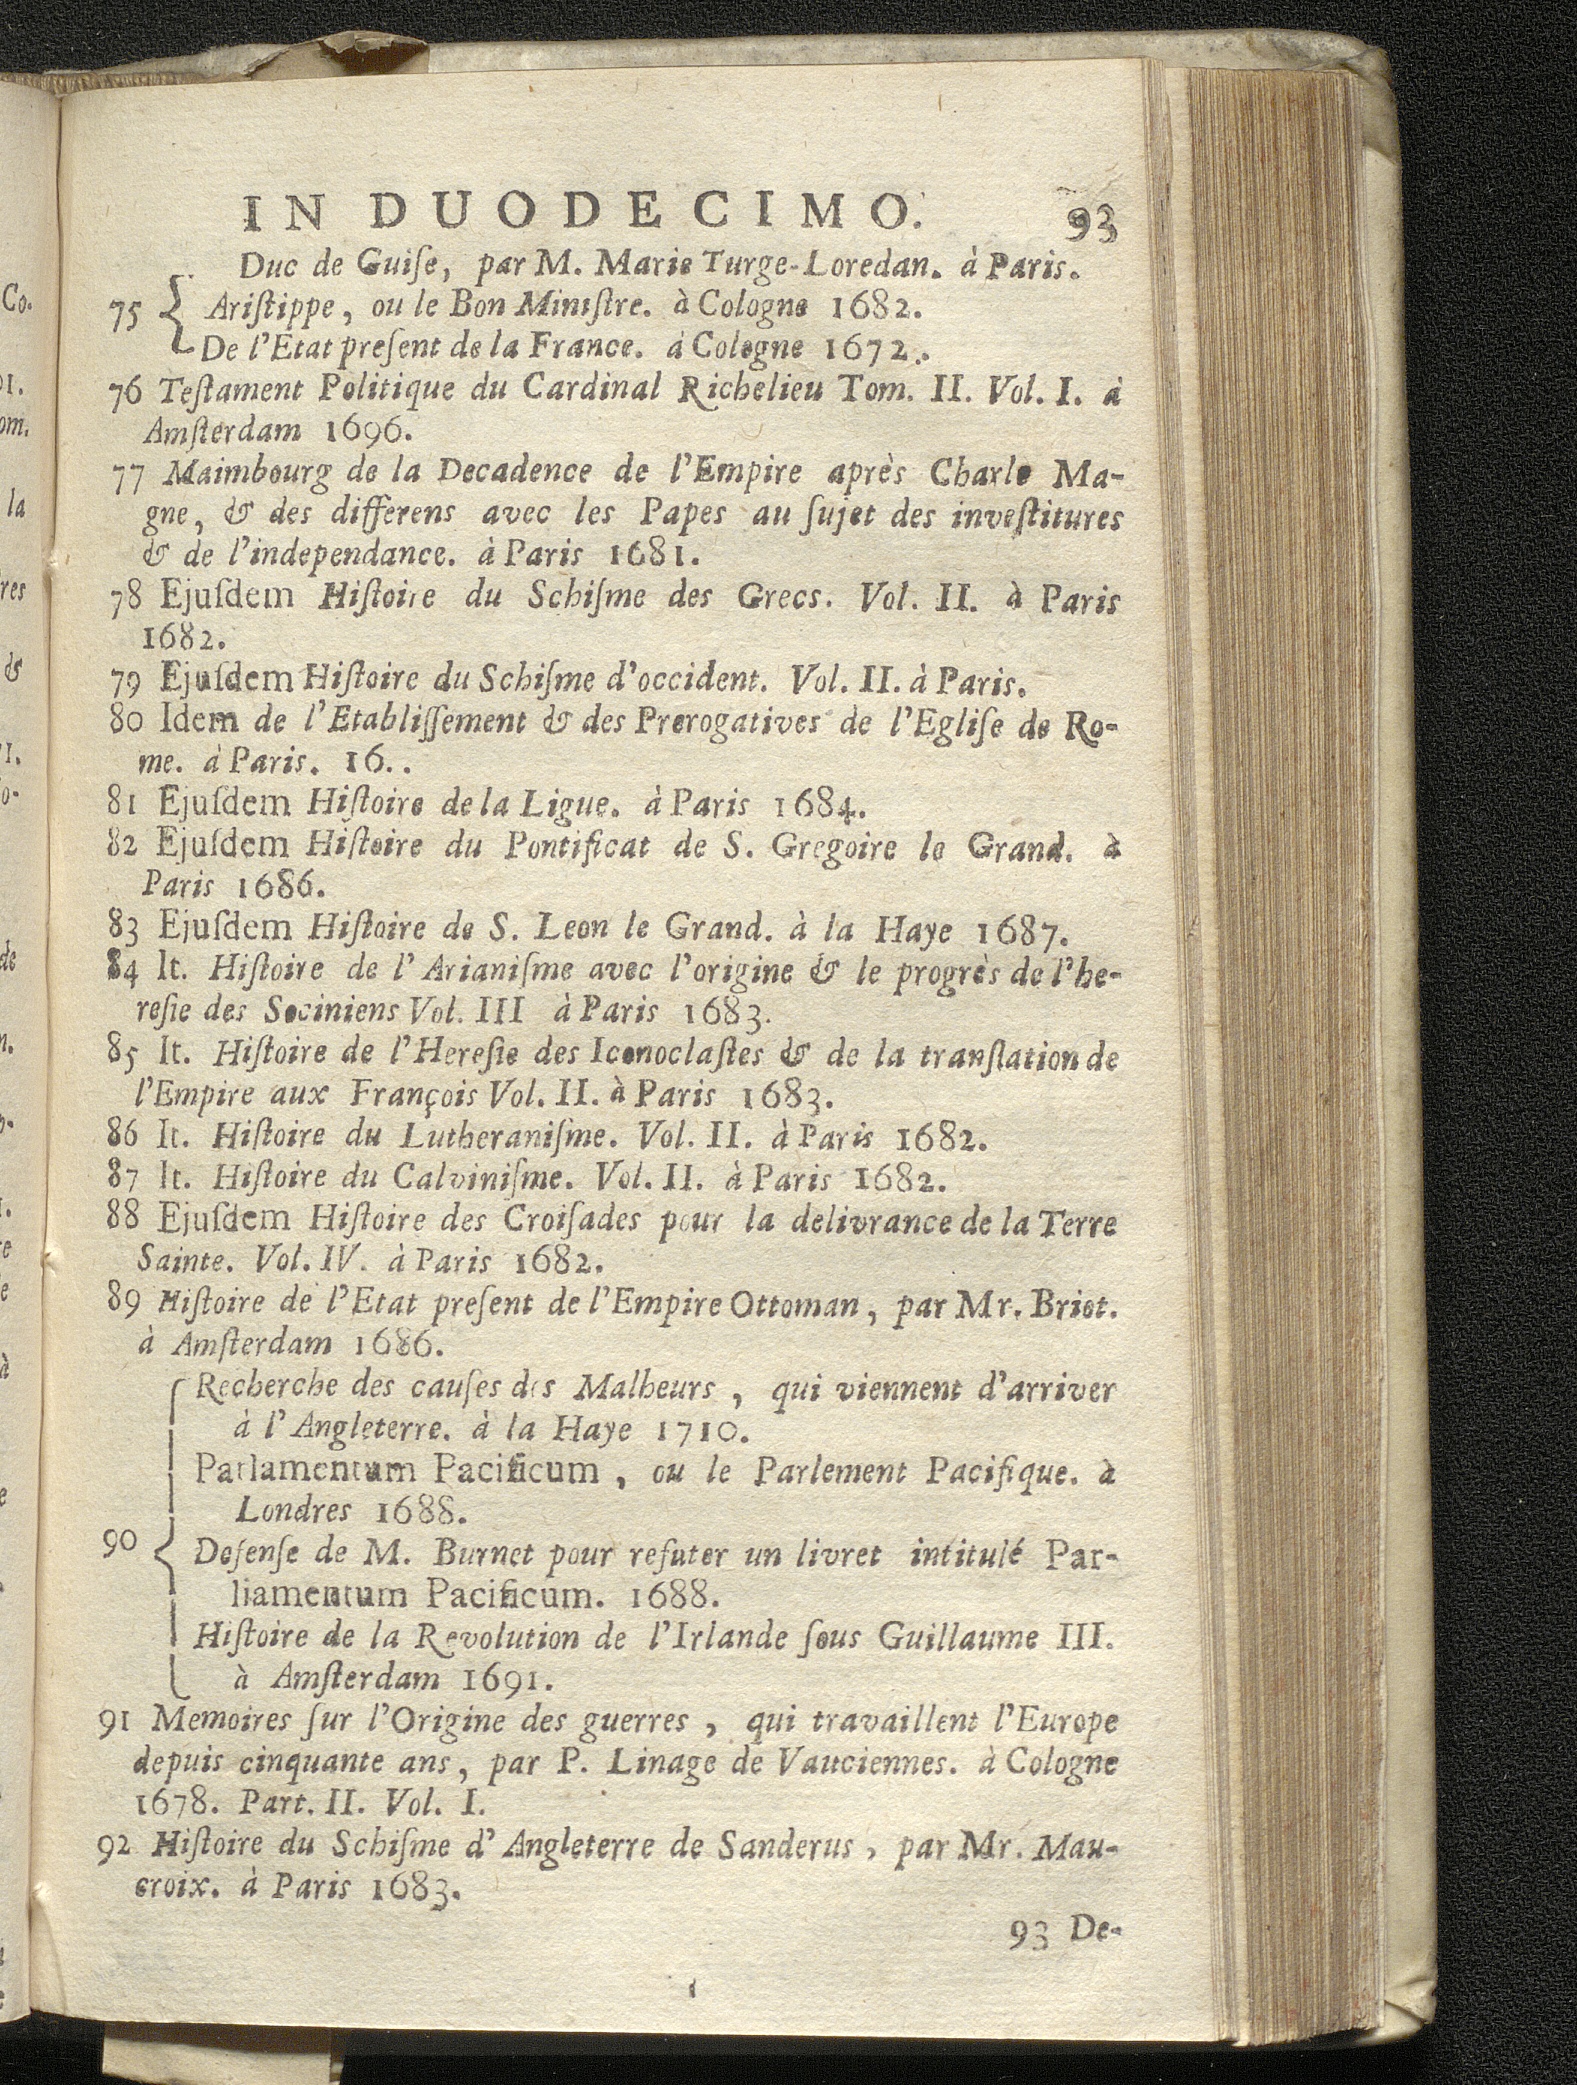 IN DUODECIMO. 93
Duc de Guiſe, par M. Marie Turge-Loredan. à Paris.
75 { Ariſtippe, ou le Bon Miniſtre. à Cologne 1682.
De l'Etat preſent de la France. à Cologne 1672.
76 Teſtament Politique du Cardinal Richelieu Tom. II. Vol. I. à
Amſterdam 1696.
77 Maimbourg de la Decadence de l'Empire après Charle Ma-
gne, & des differens avec les Papes au ſujet des inveſtitures
& de l'independance. à Paris 1681.
78 Ejuſdem Hiſtoire du Schiſme des Grecs. Vol. II. à Paris
1682.
79 Ejuſdem Hiſtoire du Schiſme d'occident. Vol. II. à Paris.
80 Idem de l'Etabliſſement & des Prerogatives de l'Egliſe de Ro-
me. à Paris. 16..
81 Ejuſdem Hiſtoire de la Ligue. à Paris 1684.
82 Ejuſdem Hiſtoire du Pontificat de S. Gregoire le Grand. à
Paris 1686.
83 Ejuſdem Hiſtoire de S. Leon le Grand. à la Haye 1687.
84 It. Hiſtoire de l'Arianiſme avec l'origine & le progrès de l'he-
reſie des Sociniens Vol. III à Paris 1683.
85 It. Hiſtoire de l'Hereſie des Iconoclaſtes & de la tranſlation de
l'Empire aux François Vol. II. à Paris 1683.
86 It. Hiſtoire du Lutheraniſme. Vol. II. à Paris 1682.
87 It. Hiſtoire du Calviniſme. Vol. II. à Paris 1682.
88 Ejuſdem Hiſtoire des Croiſades pour la delivrance de la Terre
Sainte. Vol. IV. à Paris 1682.
89 Hiſtoire de l'Etat preſent de l'Empire Ottoman, par Mr. Briot.
à Amſterdam 1686.
Recherche des cauſes des Malheurs, qui viennent d'arriver
à l'Angleterre. à la Haye 1710.
Parlamentum Pacificum, ou le Parlement Pacifique. à
Londres 1688.
90 { Defenſe de M. Burnet pour refuter un livret intitulé Par-
liamentum Pacificum. 1688.
Hiſtoire de la Revolution de l'Irlande ſous Guillaume III.
à Amſterdam 1691.
91 Memoires ſur l'Origine des guerres, qui travaillent l'Europe
depuis cinquante ans, par P. Linage de Vauciennes. à Cologne
1678. Part. II. Vol. I.
92 Hiſtoire du Schiſme d'Angleterre de Sanderus, par Mr. Mau-
croix. à Paris 1683.
93 De-